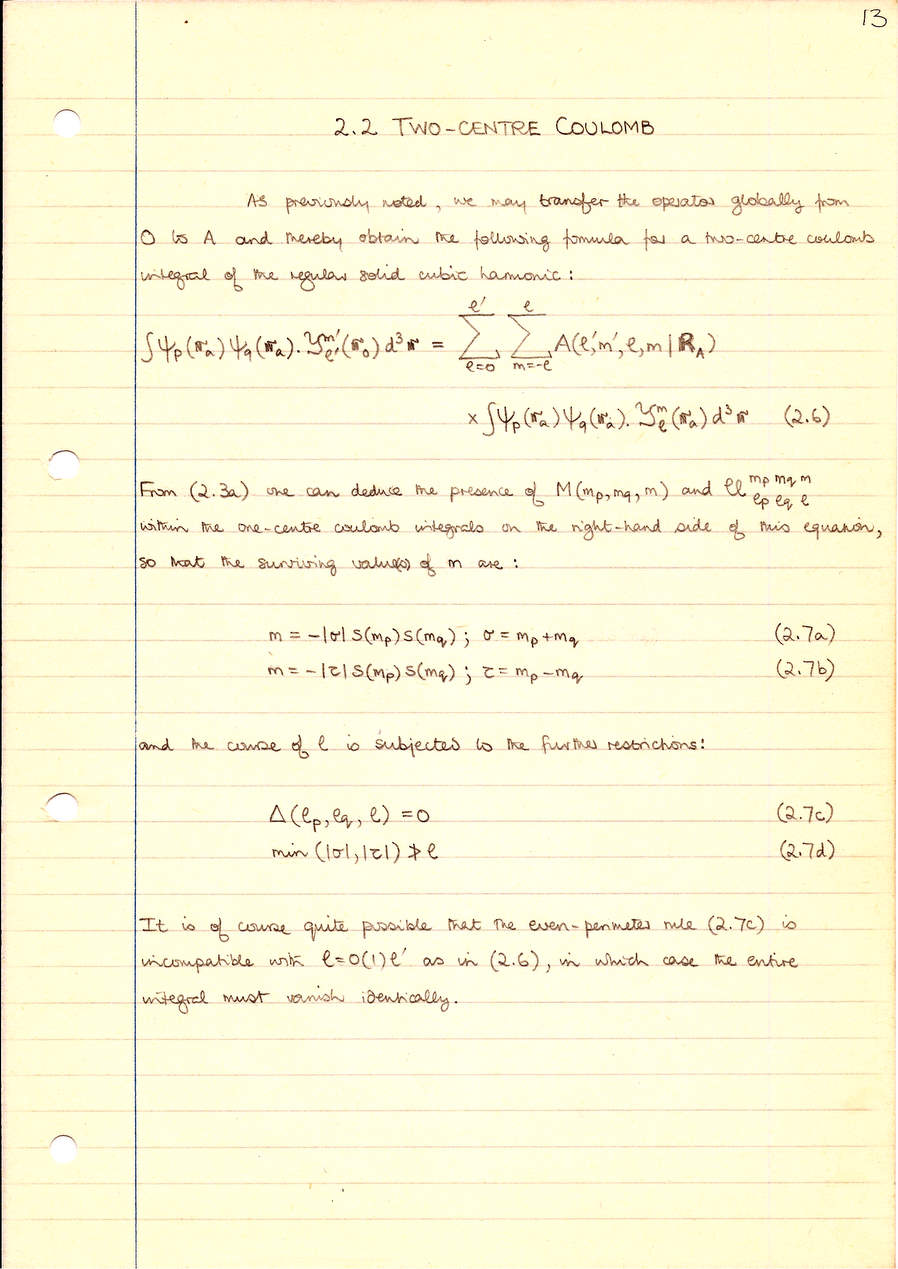 13
2.2 TWO-CENTRE COULOMB
As previously noted, we may transfer the operator globally from
O to A and thereby obtain the following formula for a two-centre coulomb
integral of the regular solid cubic harmonic:
∫ψₚ(𝕣ₐ)ψ_q(𝕣ₐ).𝒴_ℓ'^m'(𝕣₀)d³𝕣 = ∑_{ℓ=0}^{ℓ'} ∑_{m=-ℓ}^{ℓ} A(ℓ',m',ℓ,m|ℝ_A)
× ∫ψₚ(𝕣ₐ)ψ_q(𝕣ₐ).𝒴_ℓ^m(𝕣ₐ)d³𝕣 (2.6)
From (2.3a) one can deduce the presence of M(mₚ,m_q,m) and 𝒰_{ℓₚ ℓ_q ℓ}^{mₚ m_q m}
within the one-centre coulomb integrals on the right-hand side of this equation,
so that the surviving value(s) of m are:
m = -|σ|S(mₚ)S(m_q) ; σ = mₚ+m_q (2.7a)
m = -|τ|S(mₚ)S(m_q) ; τ = mₚ-m_q (2.7b)
and the course of ℓ is subjected to the further restrictions:
Δ(ℓₚ,ℓ_q,ℓ) = 0 (2.7c)
min (|σ|,|τ|) ≯ ℓ (2.7d)
It is of course quite possible that the even-perimeter rule (2.7c) is
incompatible with ℓ=0(1)ℓ' as in (2.6), in which case the entire
integral must vanish identically.